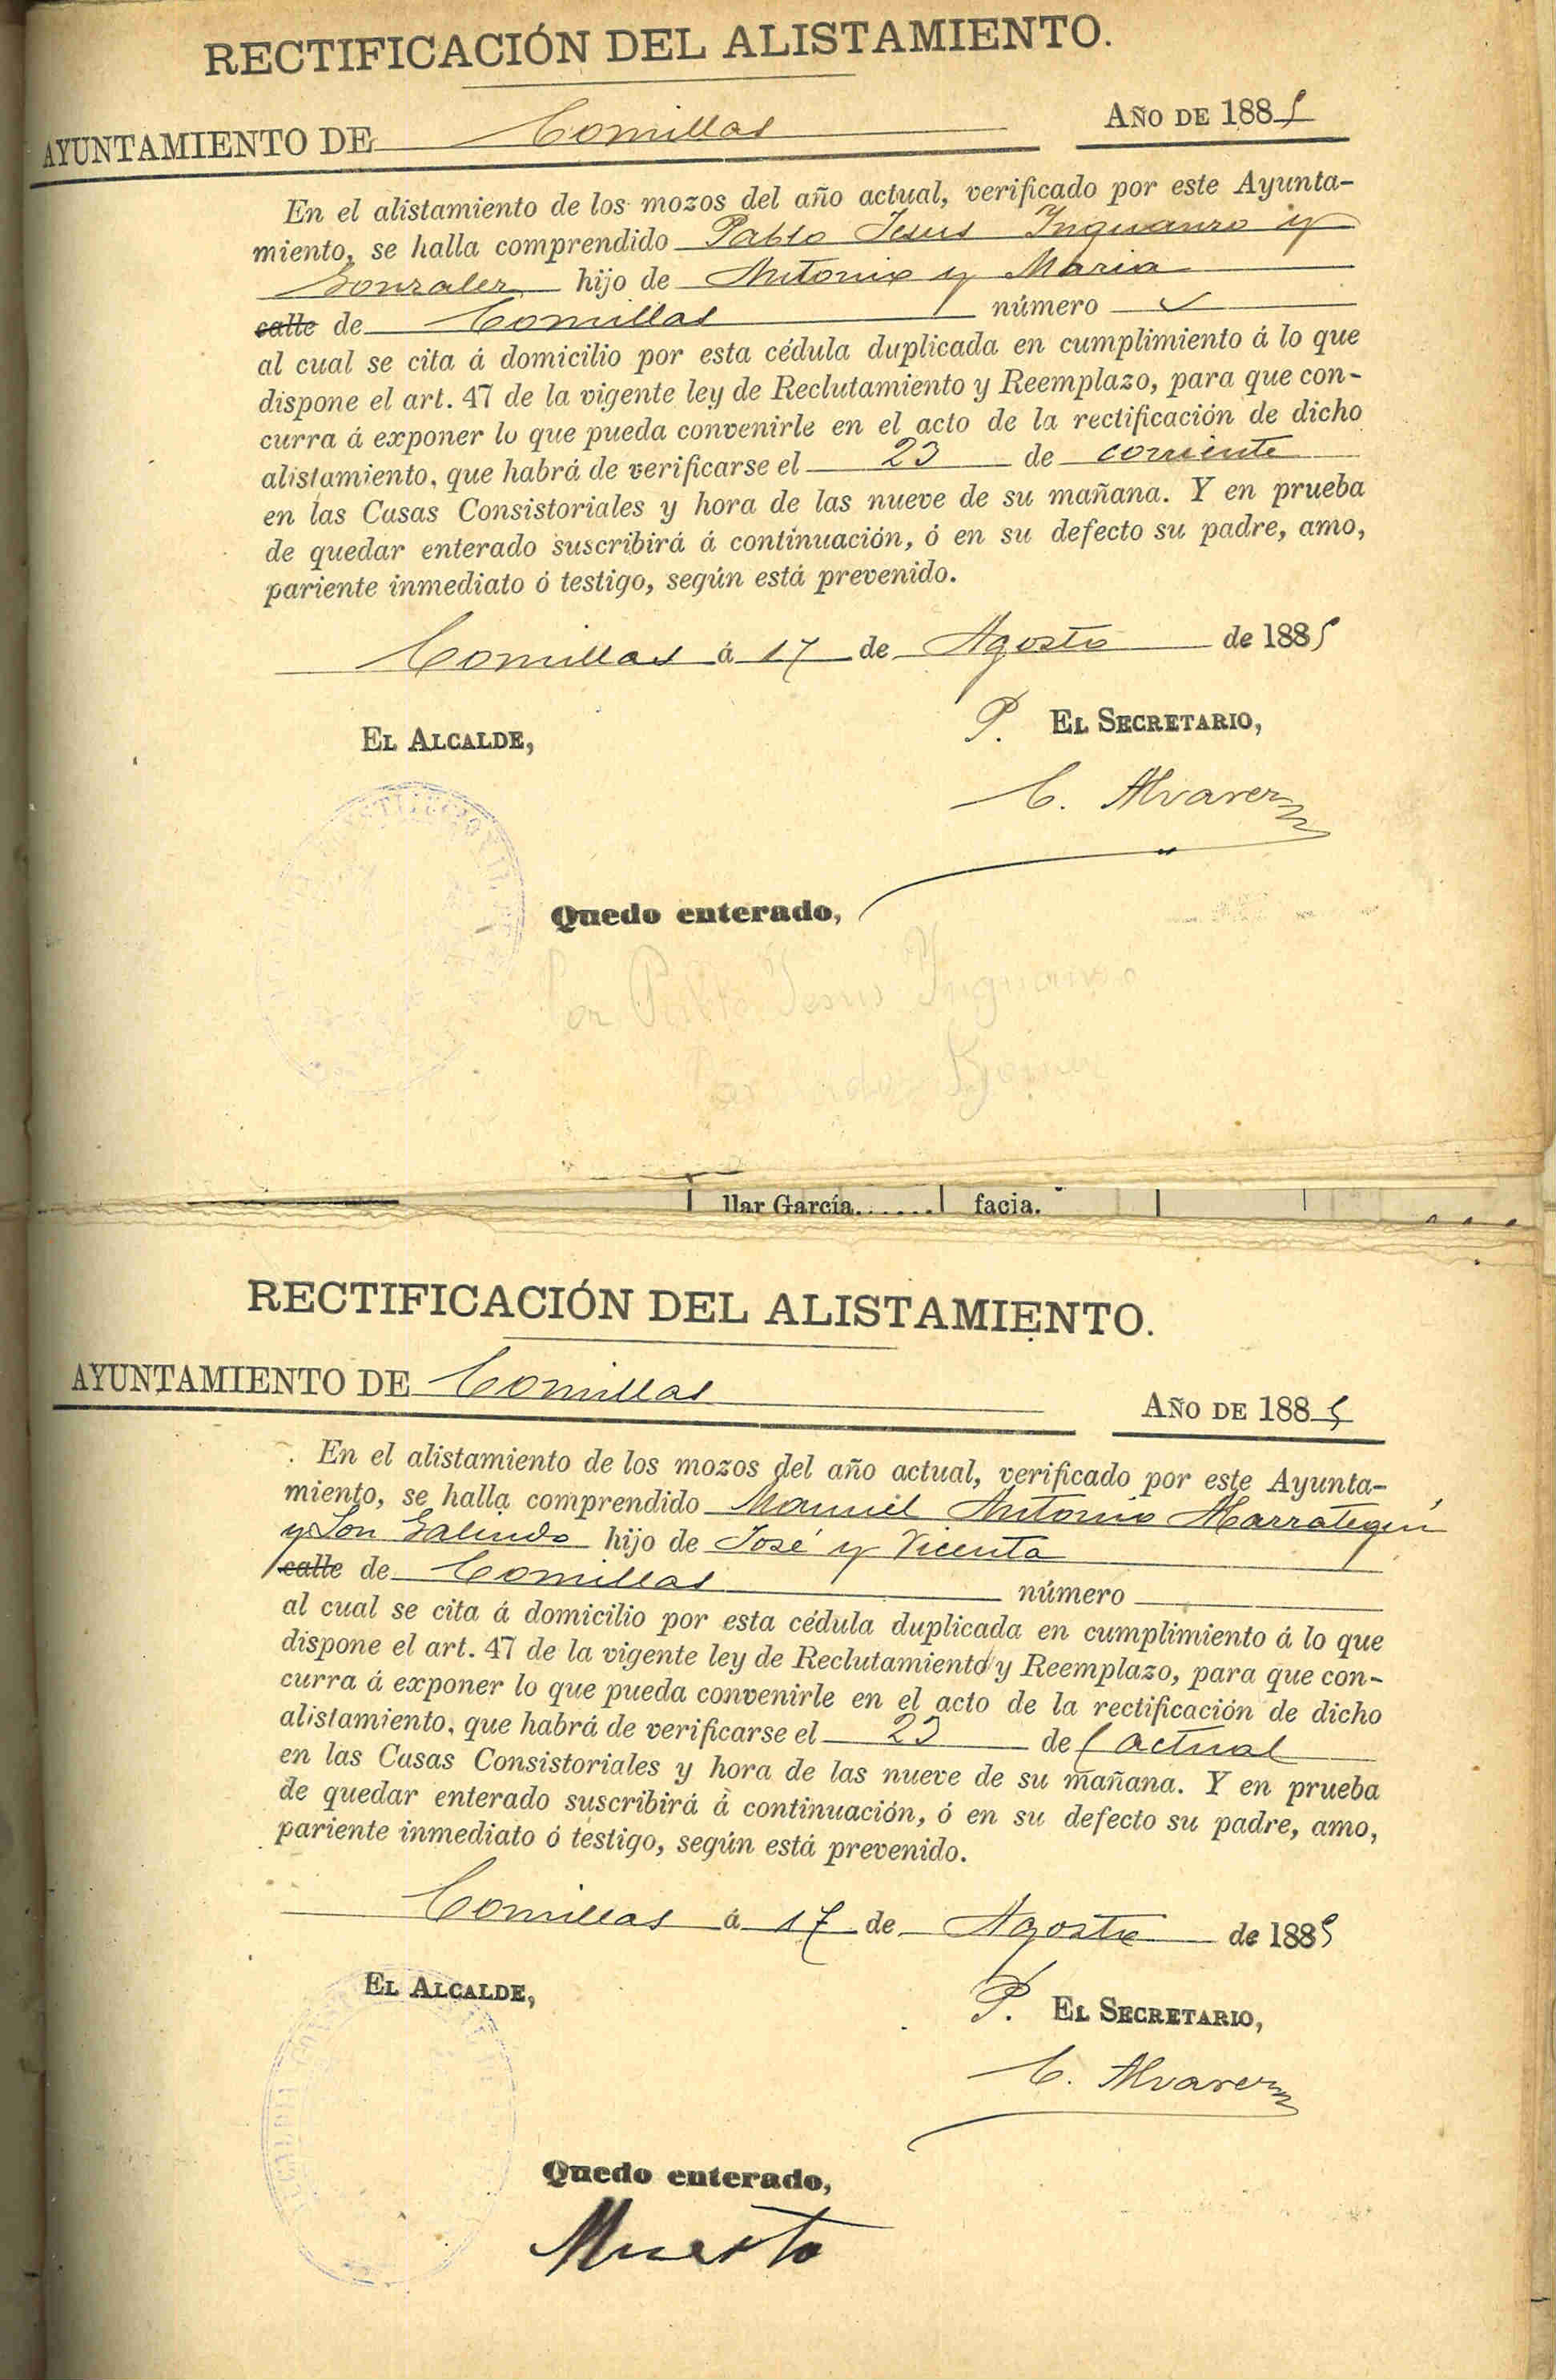 RECTIFICACIÓN DEL ALISTAMIENTO.
AYUNTAMIENTO DE Comillas AÑO DE 1885
En el alistamiento de los mozos del año actual, verificado por este Ayunta-
miento, se halla comprendido Pablo Jesus Inguanzo y
Gonzalez hijo de Antonio y Maria
calle de Comillas número
al cual se cita á domicilio por esta cédula duplicada en cumplimiento á lo que
dispone el art. 47 de la vigente ley de Reclutamiento y Reemplazo, para que con-
curra á exponer lo que pueda convenirle en el acto de la rectificación de dicho
alistamiento, que habrá de verificarse el 23 de corriente
en las Casas Consistoriales y hora de las nueve de su mañana. Y en prueba
de quedar enterado suscribirá á continuación, ó en su defecto su padre, amo,
pariente inmediato ó testigo, según está prevenido.
Comillas á 17 de Agosto de 1885
EL ALCALDE, P. EL SECRETARIO,
C. Alvarez
Quedo enterado,
Por Pablo Jesus Inguanzo
llar García...... facia.
RECTIFICACIÓN DEL ALISTAMIENTO.
AYUNTAMIENTO DE Comillas
AÑO DE 1885
En el alistamiento de los mozos del año actual, verificado por este Ayunta-
miento, se halla comprendido Manuel Antonio Marrategui
y Son Galindo hijo de José y Vicenta
calle de Comillas número
al cual se cita á domicilio por esta cédula duplicada en cumplimiento á lo que
dispone el art. 47 de la vigente ley de Reclutamiento y Reemplazo, para que con-
curra á exponer lo que pueda convenirle en el acto de la rectificación de dicho
alistamiento, que habrá de verificarse el 23 del actual
en las Casas Consistoriales y hora de las nueve de su mañana. Y en prueba
de quedar enterado suscribirá á continuación, ó en su defecto su padre, amo,
pariente inmediato ó testigo, según está prevenido.
Comillas á 17 de Agosto de 1885
EL ALCALDE, P. EL SECRETARIO,
C. Alvarez
Quedo enterado,
Muerto